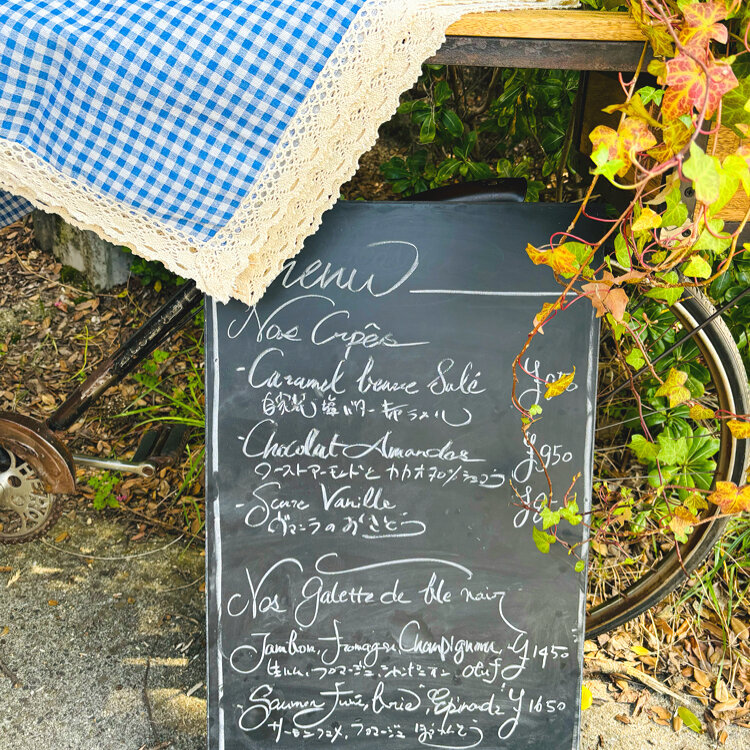 menu
Nos Crêpes
- Caramel beurre Salé
自家製 塩バターキャラメル
- Chocolat Amandes ¥950
ローストアーモンドとカカオ70%ショコラ
- Sucre Vanille
ヴァニラのおさとう
Nos Galette de ble noir
Jambon, fromage, Champignon, ¥1450
生ハム、フロマージュ、シャンピニオン oeuf
- Saumon fumé, brie, Epinards ¥1650
サーモンフュメ、フロマージュ ほうれんそう